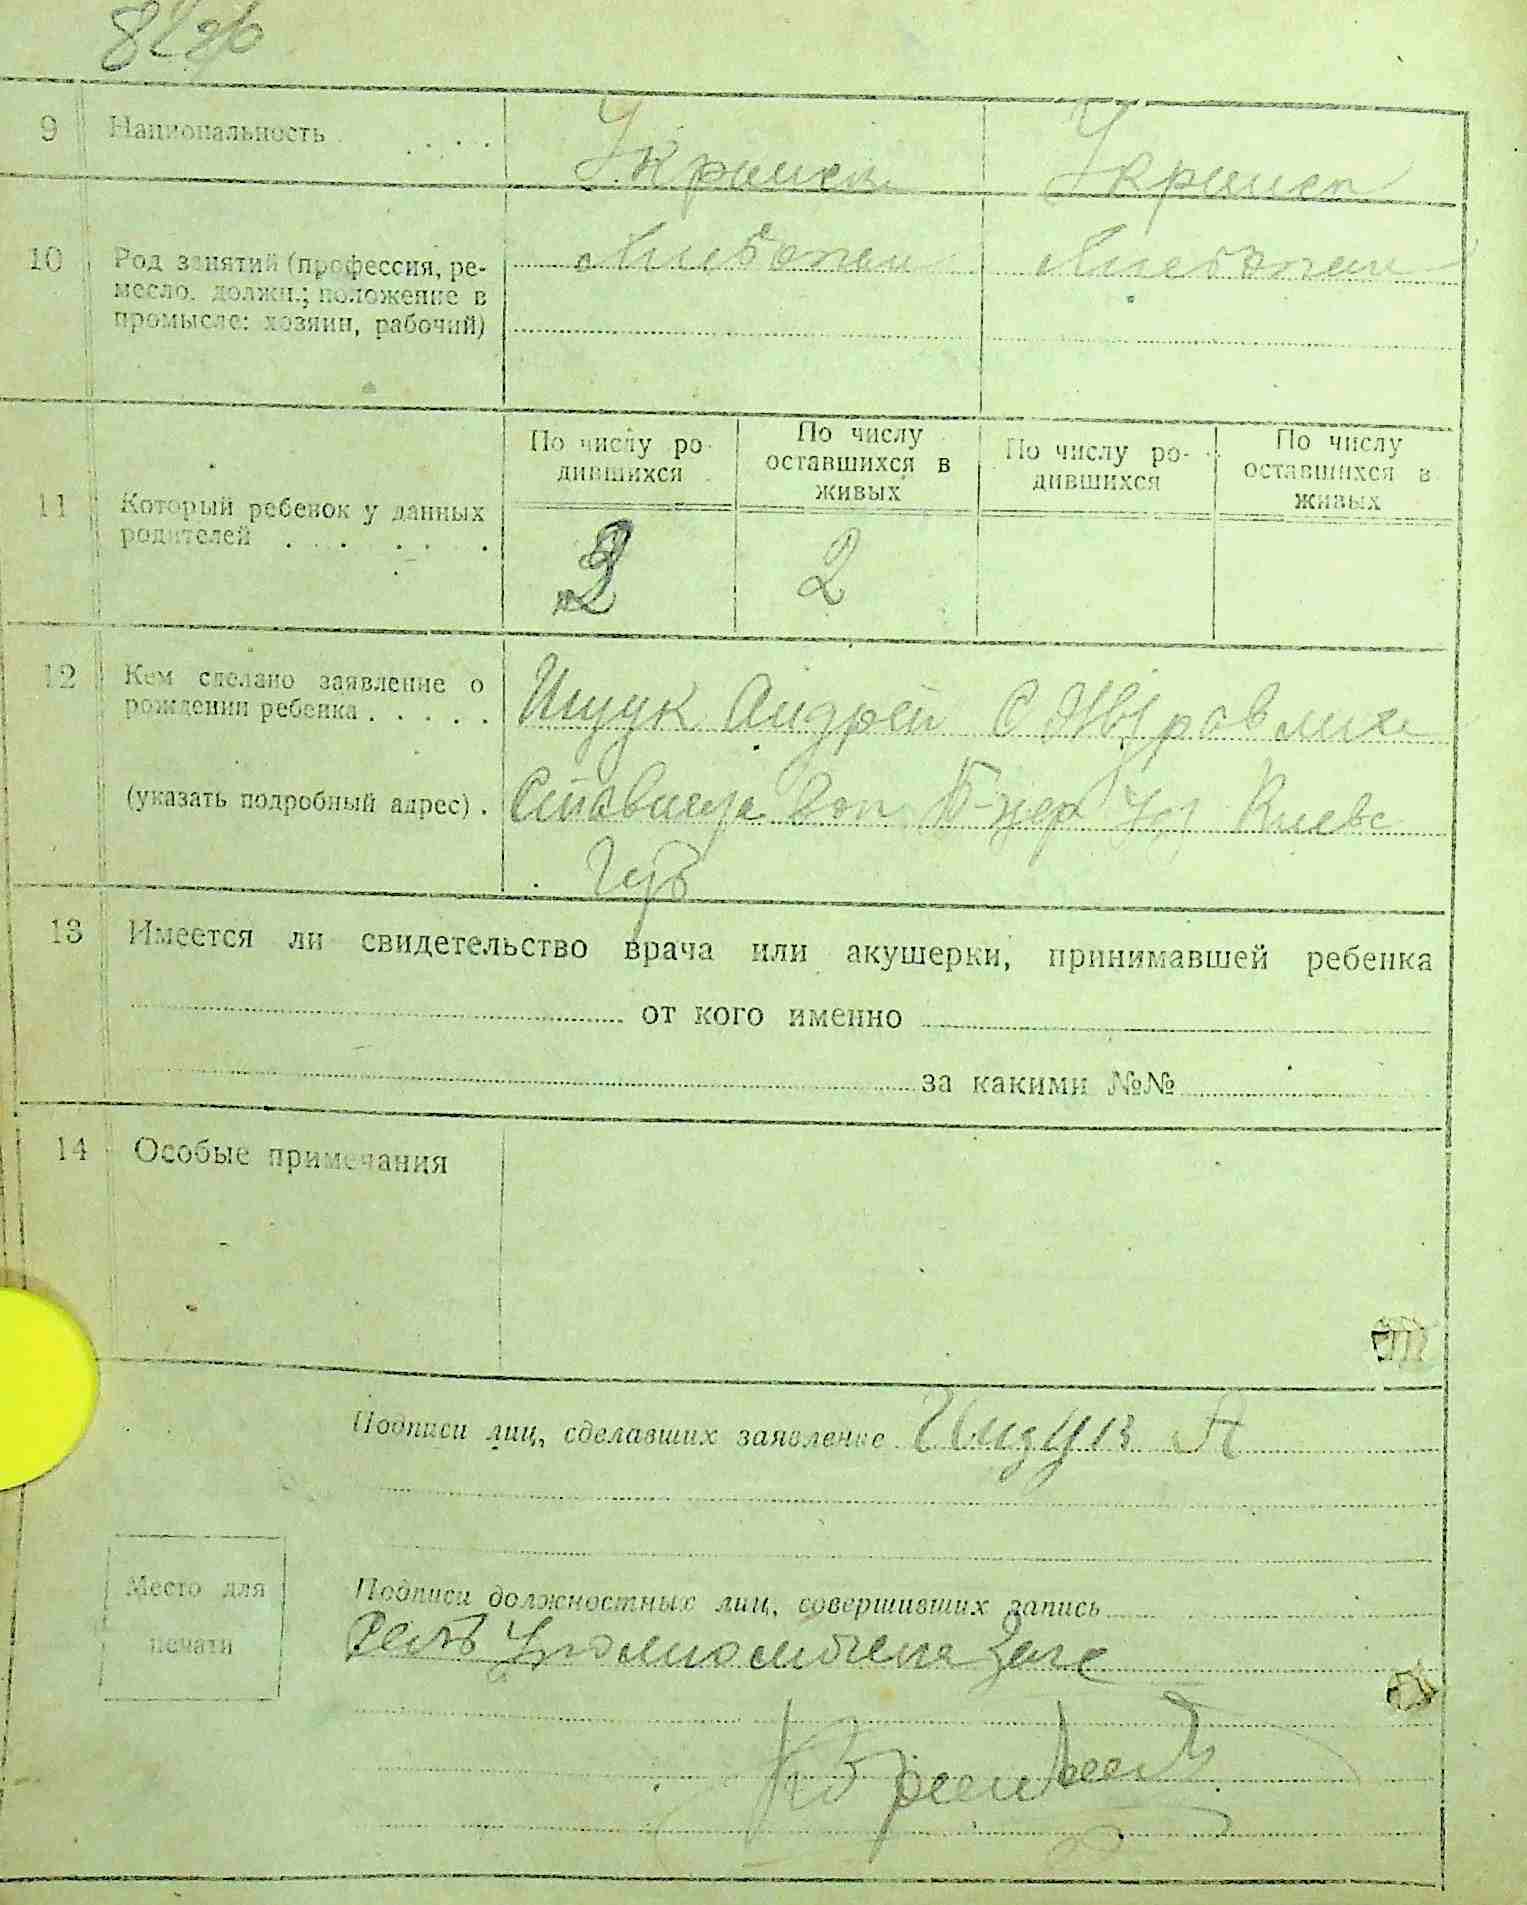 9 Национальность
Украин Украин
10 Род занятий (профессия, ре-
месло, должн.; положение в
промысле: хозяин, рабочий)
Хлебопаш Хлебопаш
11 Который ребенок у данных
родителей
По числу ро-
дившихся
По числу
оставшихся в
живых
По числу ро-
дившихся
По числу
оставшихся в
живых
2 2
12 Кем сделано заявление о
рождении ребенка
Ищук Андрей С
(указать подробный адрес).
Б-цер Киевс
Губ
13 Имеется ли свидетельство врача или акушерки, принимавшей ребенка
от кого именно
за какими №№
14 Особые примечания
Подписи лиц, сделавших заявление Ищук А
Место для
печати
Подписи должностных лиц, совершивших запись